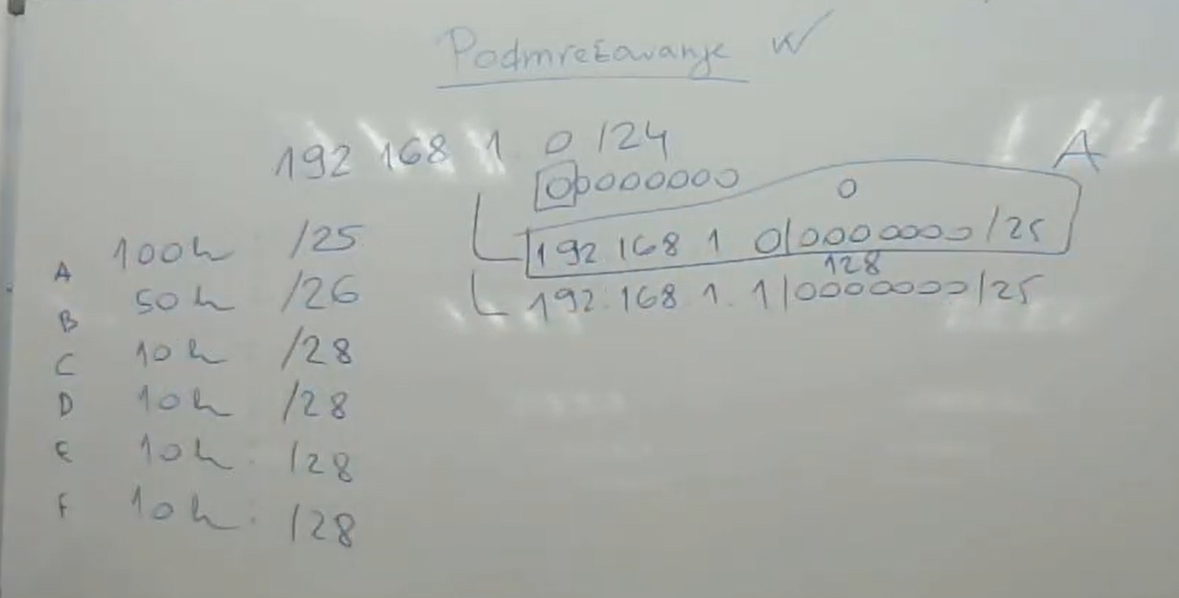 Podmrežavanje
192 168 1 0 /24
00000000
A
0
192.168 1 0|0000000/25
128
192.168.1.1|0000000/25
A 100h /25
B 50h /26
C 10h /28
D 10h /28
E 10h. /28
F 10h. /28